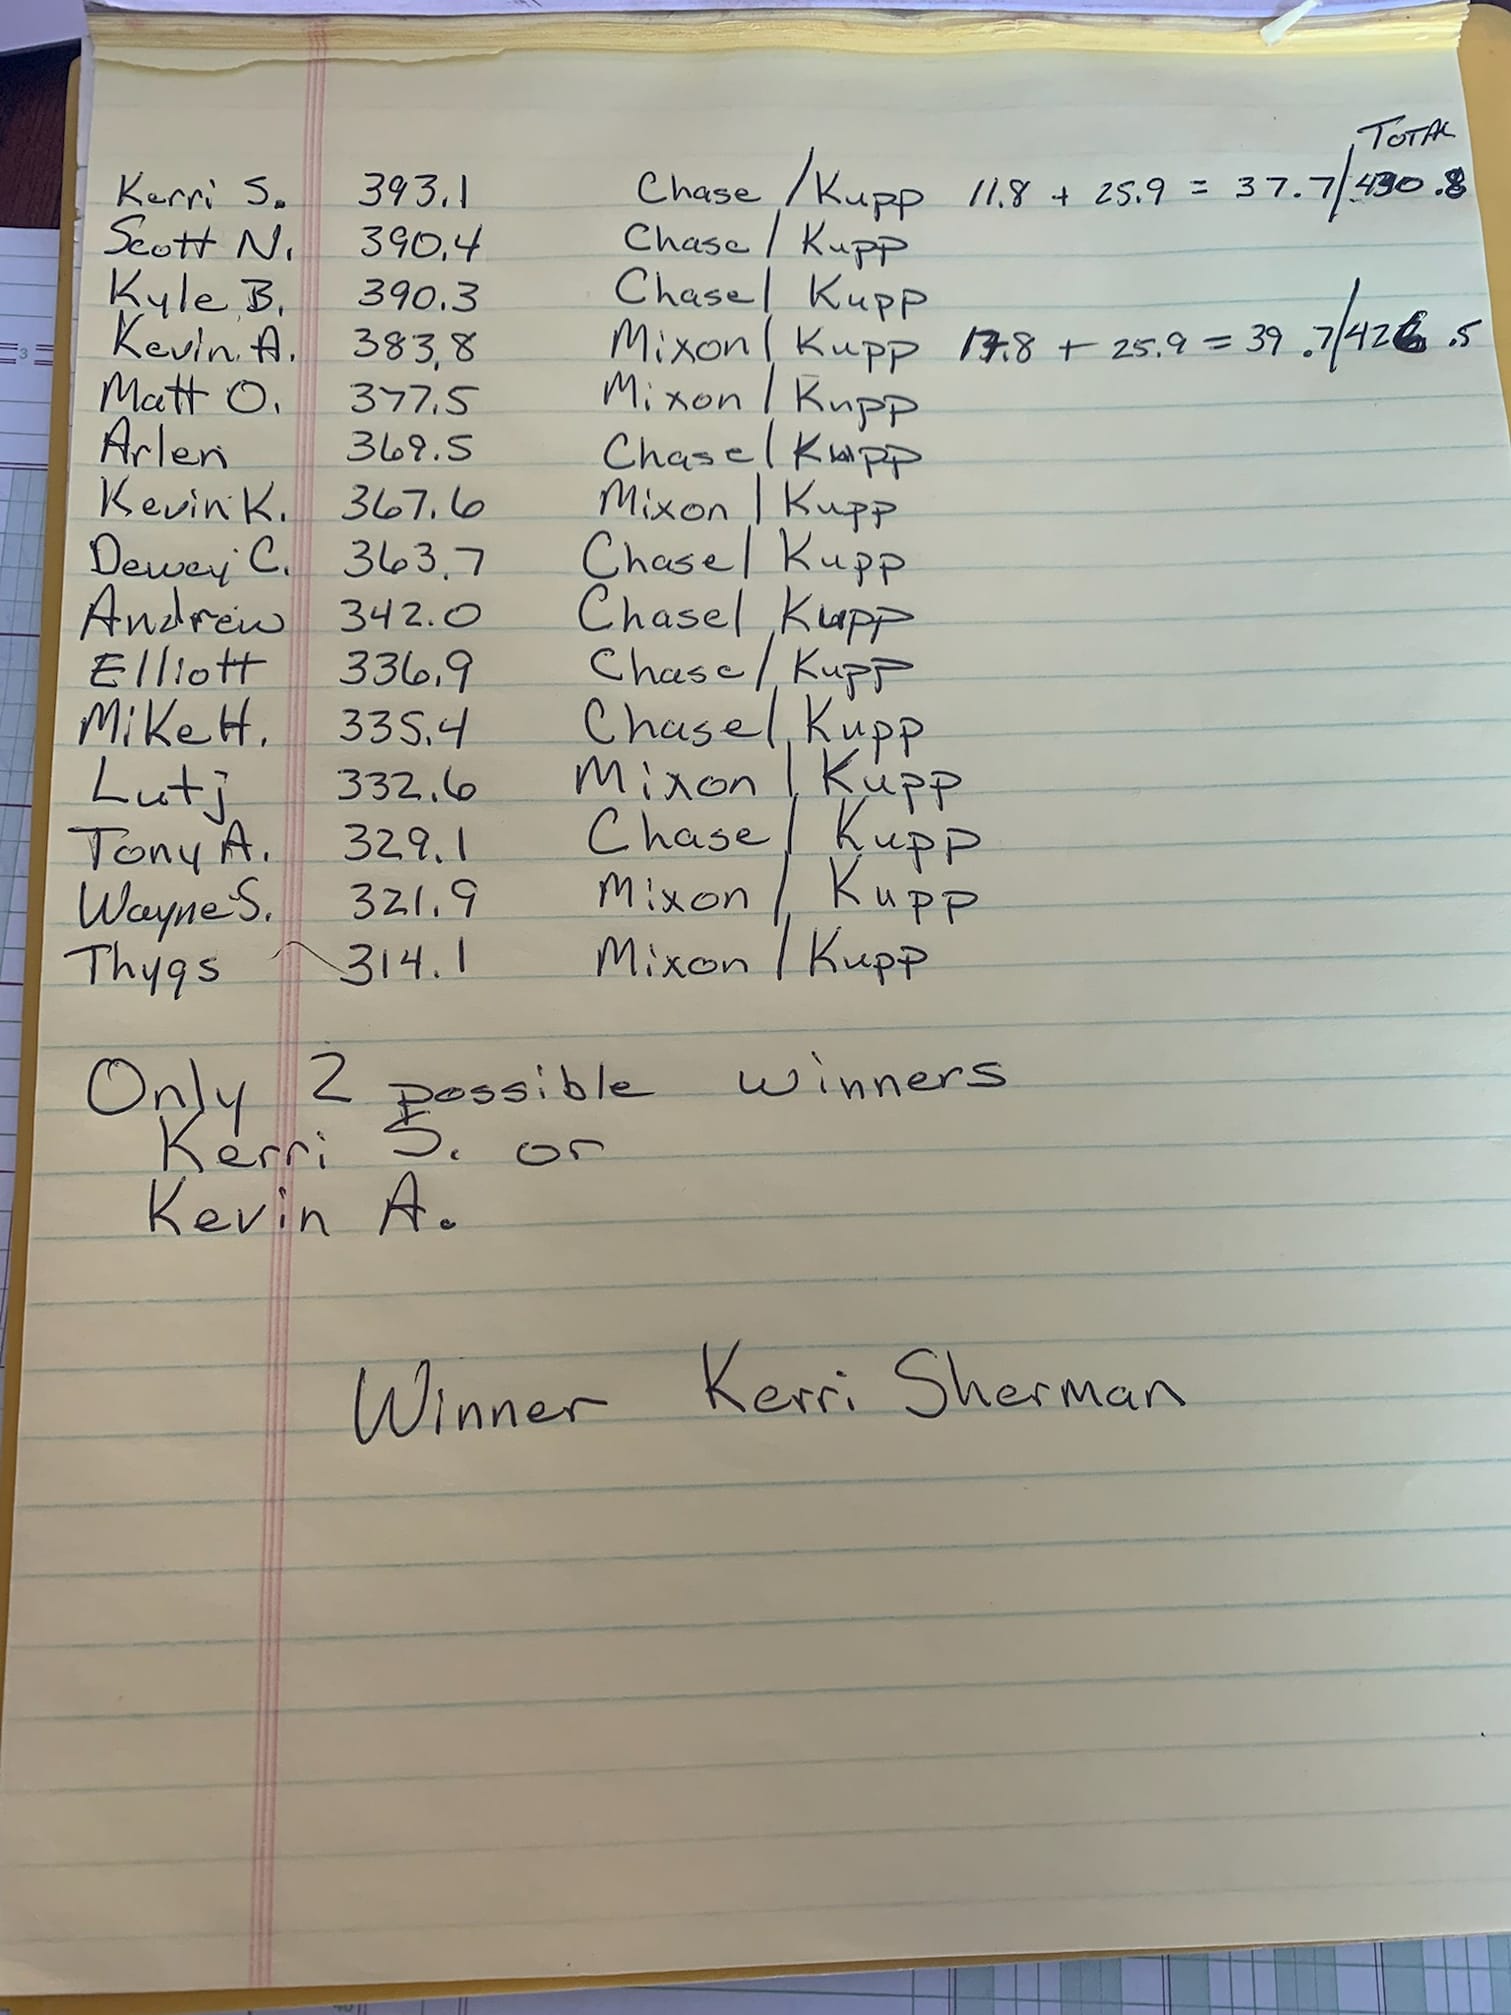 TOTAL
Kerri S. 393.1 Chase / Kupp 11.8 + 25.9 = 37.7 / 430.8
Scott N. 390.4 Chase / Kupp
Kyle B. 390.3 Chase / Kupp
Kevin A. 383.8 Mixon / Kupp + 25.9 = 39.7 / 426.5
Matt O. 377.5 Mixon / Kupp
Arlen 369.5 Chase / Kupp
Kevin K. 367.6 Mixon / Kupp
Dewey C. 363.7 Chase / Kupp
Andrew 342.0 Chase / Kupp
Elliott 336.9 Chase / Kupp
Mike H. 335.4 Chase / Kupp
Lutj 332.6 Mixon / Kupp
Tony A. 329.1 Chase / Kupp
Wayne S. 321.9 Mixon / Kupp
Thygs 314.1 Mixon / Kupp
Only 2 possible winners
Kerri S. or
Kevin A.
Winner Kerri Sherman